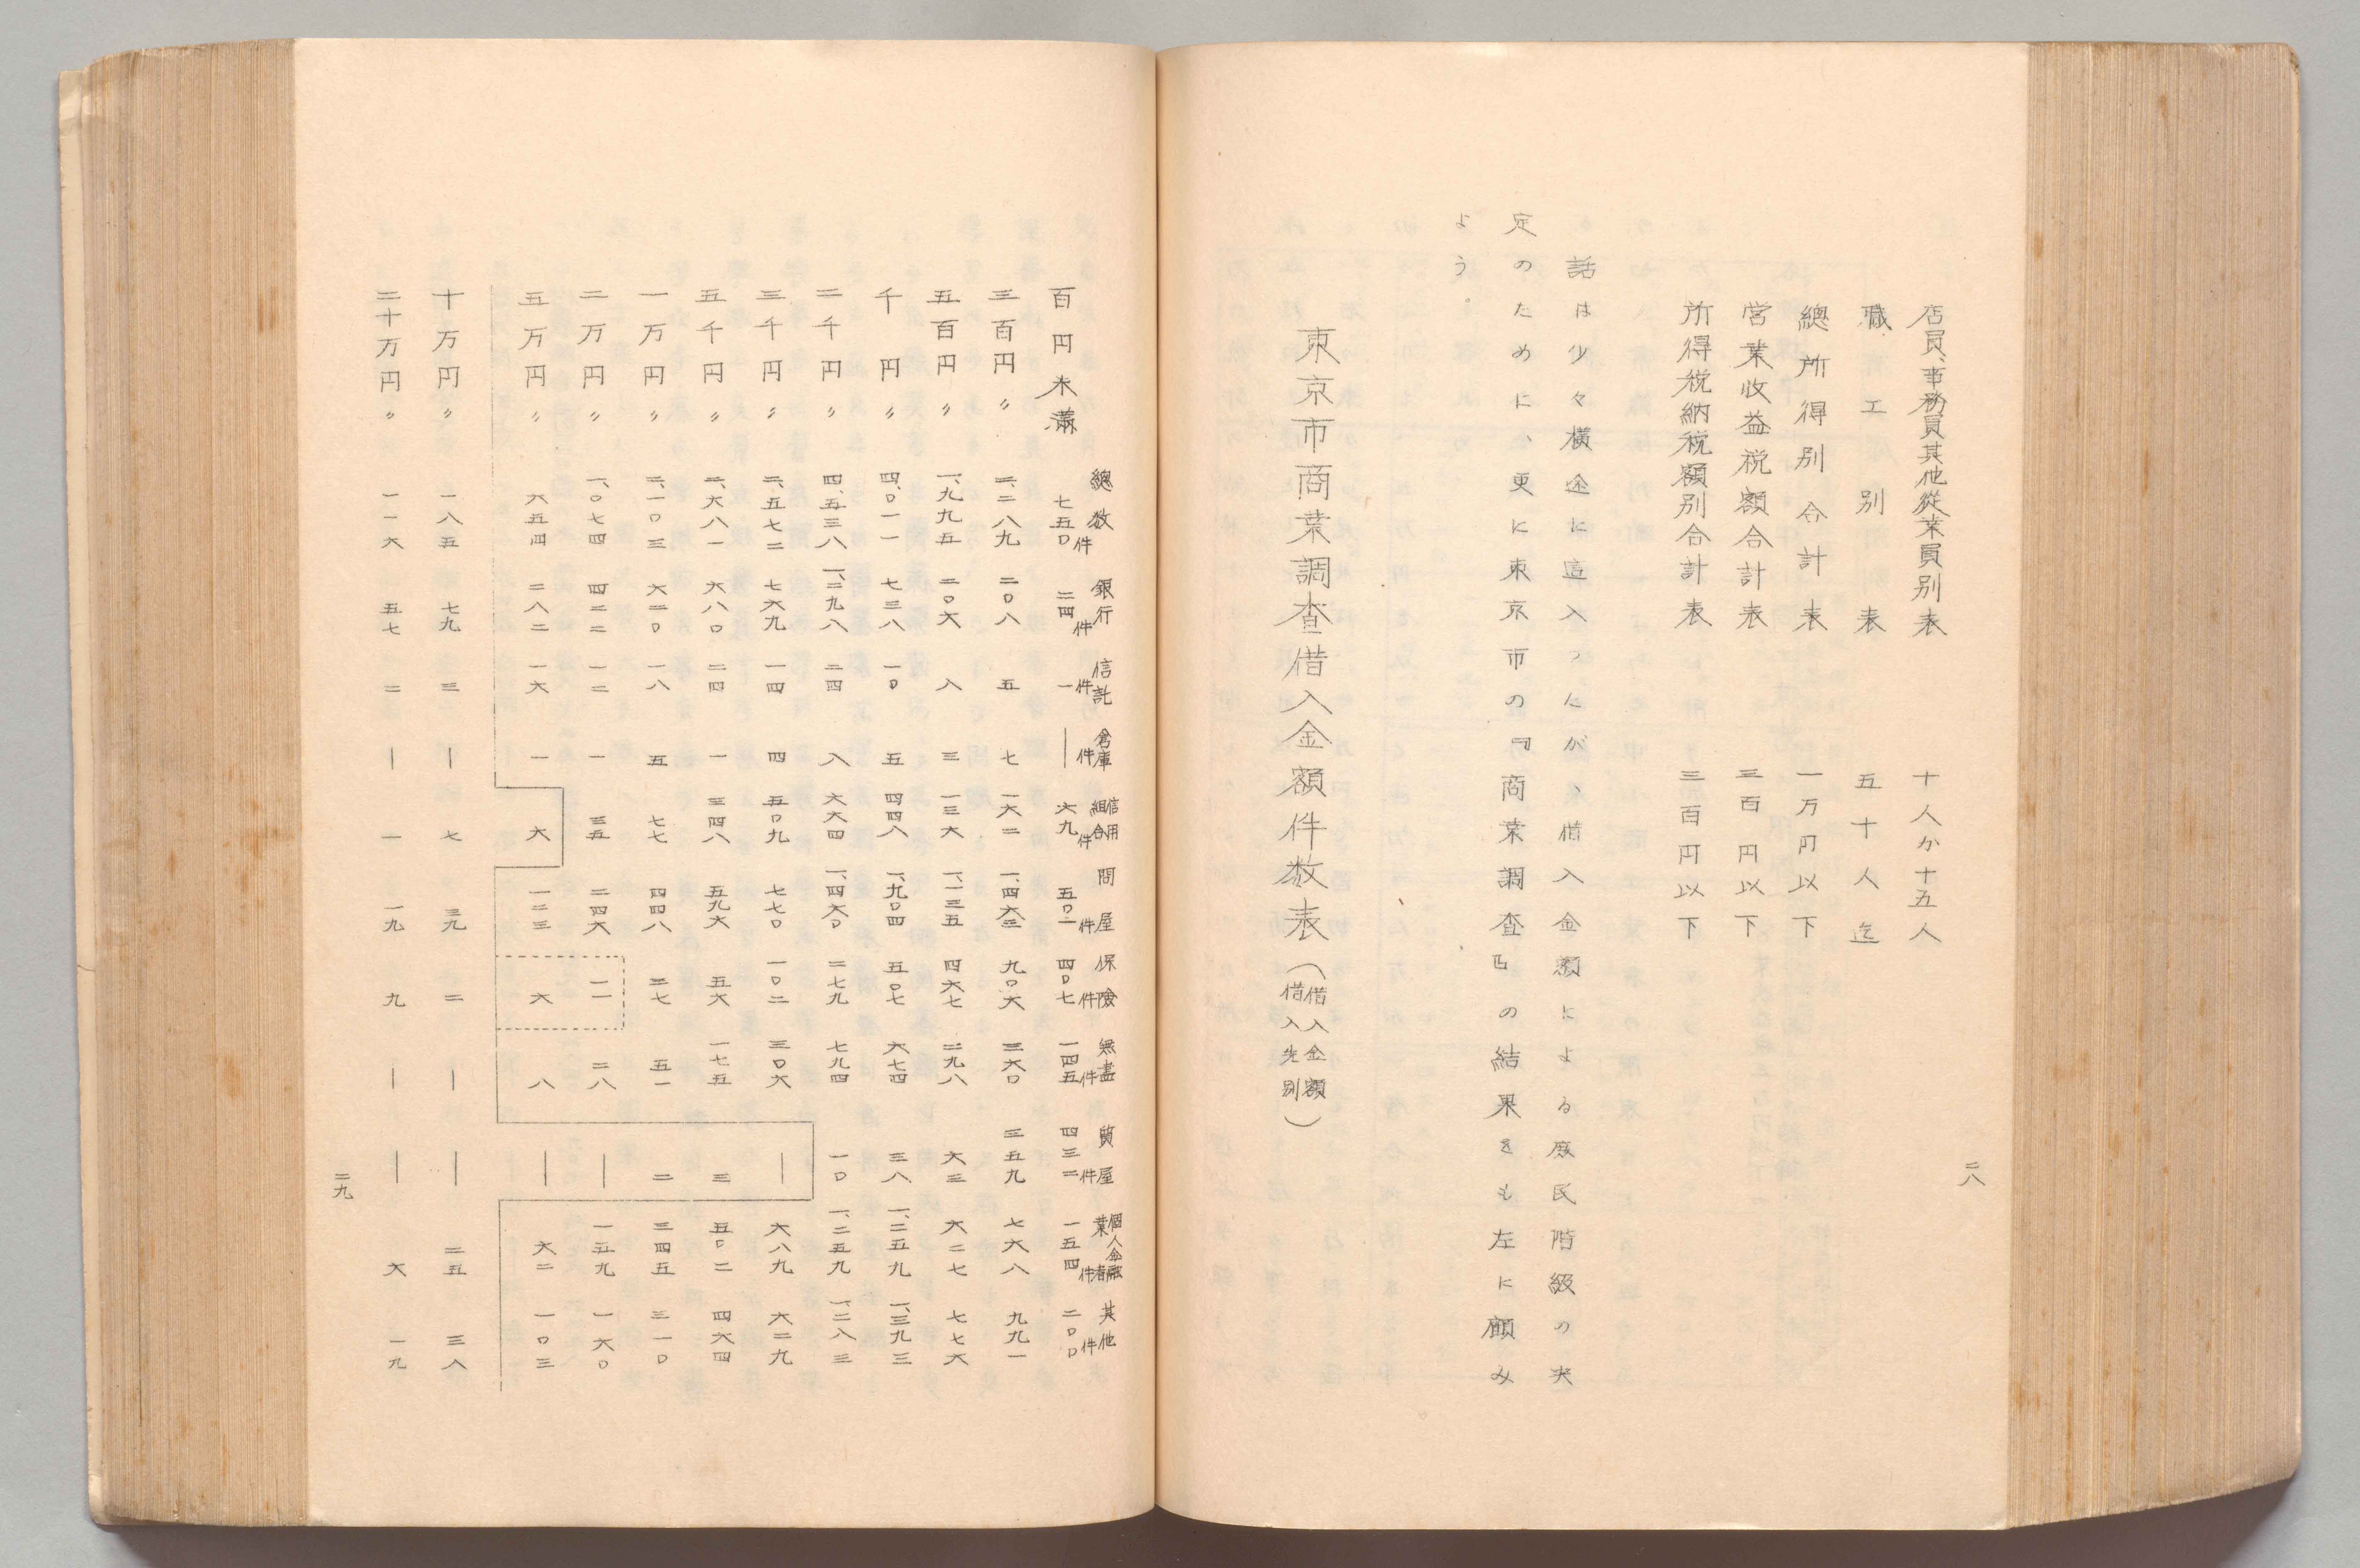 店員、事務員其他從業員別表　十人か十五人
職工別表　五十人迄
總所得別合計表　一万円以下
営業收益税額合計表　三百円以下
所得税納税額別合計表　三百円以下
話は少々横途に這入つたが、借入金額による庶民階級の決
定のために、更に東京市の『商業調査』の結果をも左に顧み
よう。
東京市商業調査借入金額件数表（借入金額借入先別）
二八
總数　銀行　信託　倉庫　信用組合　問屋　保險　無盡　質屋　個人金融業者　其他
百円未満　七五〇件　二四件　一件　｜件　六九件　五〇一件　四〇七件　一四五件　四三一件　一五四件　二〇〇件
三百円〃　二、二八九　二〇八　五　七　一六二　一、四六三　九〇六　三六〇　三五九　七六八　九九一
五百円〃　一、九九五　二〇六　八　三　一三六　一、一三五　四六七　二九八　六三　六二七　七七六
千円〃　四、〇一一　七三八　一〇　五　四四八　一、九〇四　五〇七　六七四　三八　一、二五九　一、三九三
二千円〃　四、五三八　一、二九八　二四　八　六六四　一、四六〇　二七九　七九四　一〇　一、二五九　一、二八三
三千円〃　二、五七二　七六九　一四　四　五〇九　七七〇　一〇二　三〇六　｜　六八九　六二九
五千円〃　二、六八一　六八〇　二四　一　三四八　五九六　五六　一七五　三　五〇二　四六四
一万円〃　二、一〇三　六二〇　一八　五　七七　四四八　三七　五一　二　三四五　三一〇
二万円〃　一、〇七四　四二二　一二　一　三五　二四六　一一　二八　｜　一五九　一六〇
五万円〃　六五四　二八二　一六　一　六　一二三　六　八　｜　六二　一〇三
十万円〃　一八五　七九　三　｜　七　三九　二　｜　｜　二五　三八
二十万円〃　一一六　五七　二　｜　一　一九　九　｜　｜　六　一九
二九